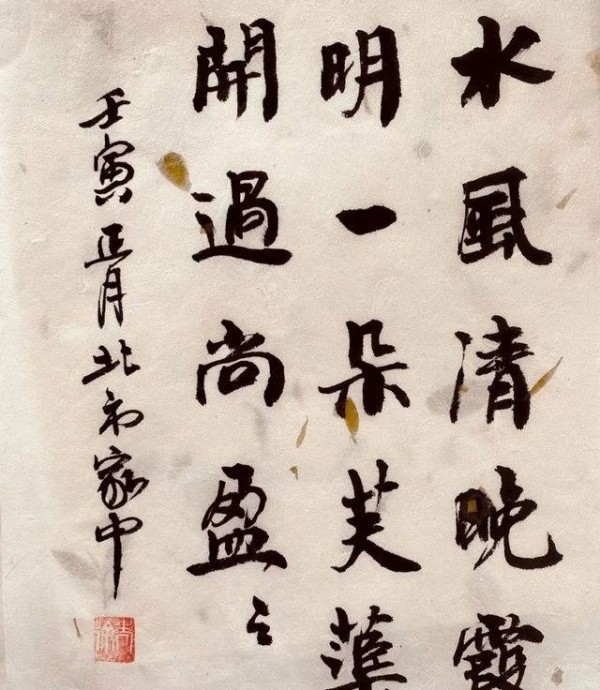 水風清晚霞
明一朵芙蕖
開過尚盈々
壬寅正月北京家中